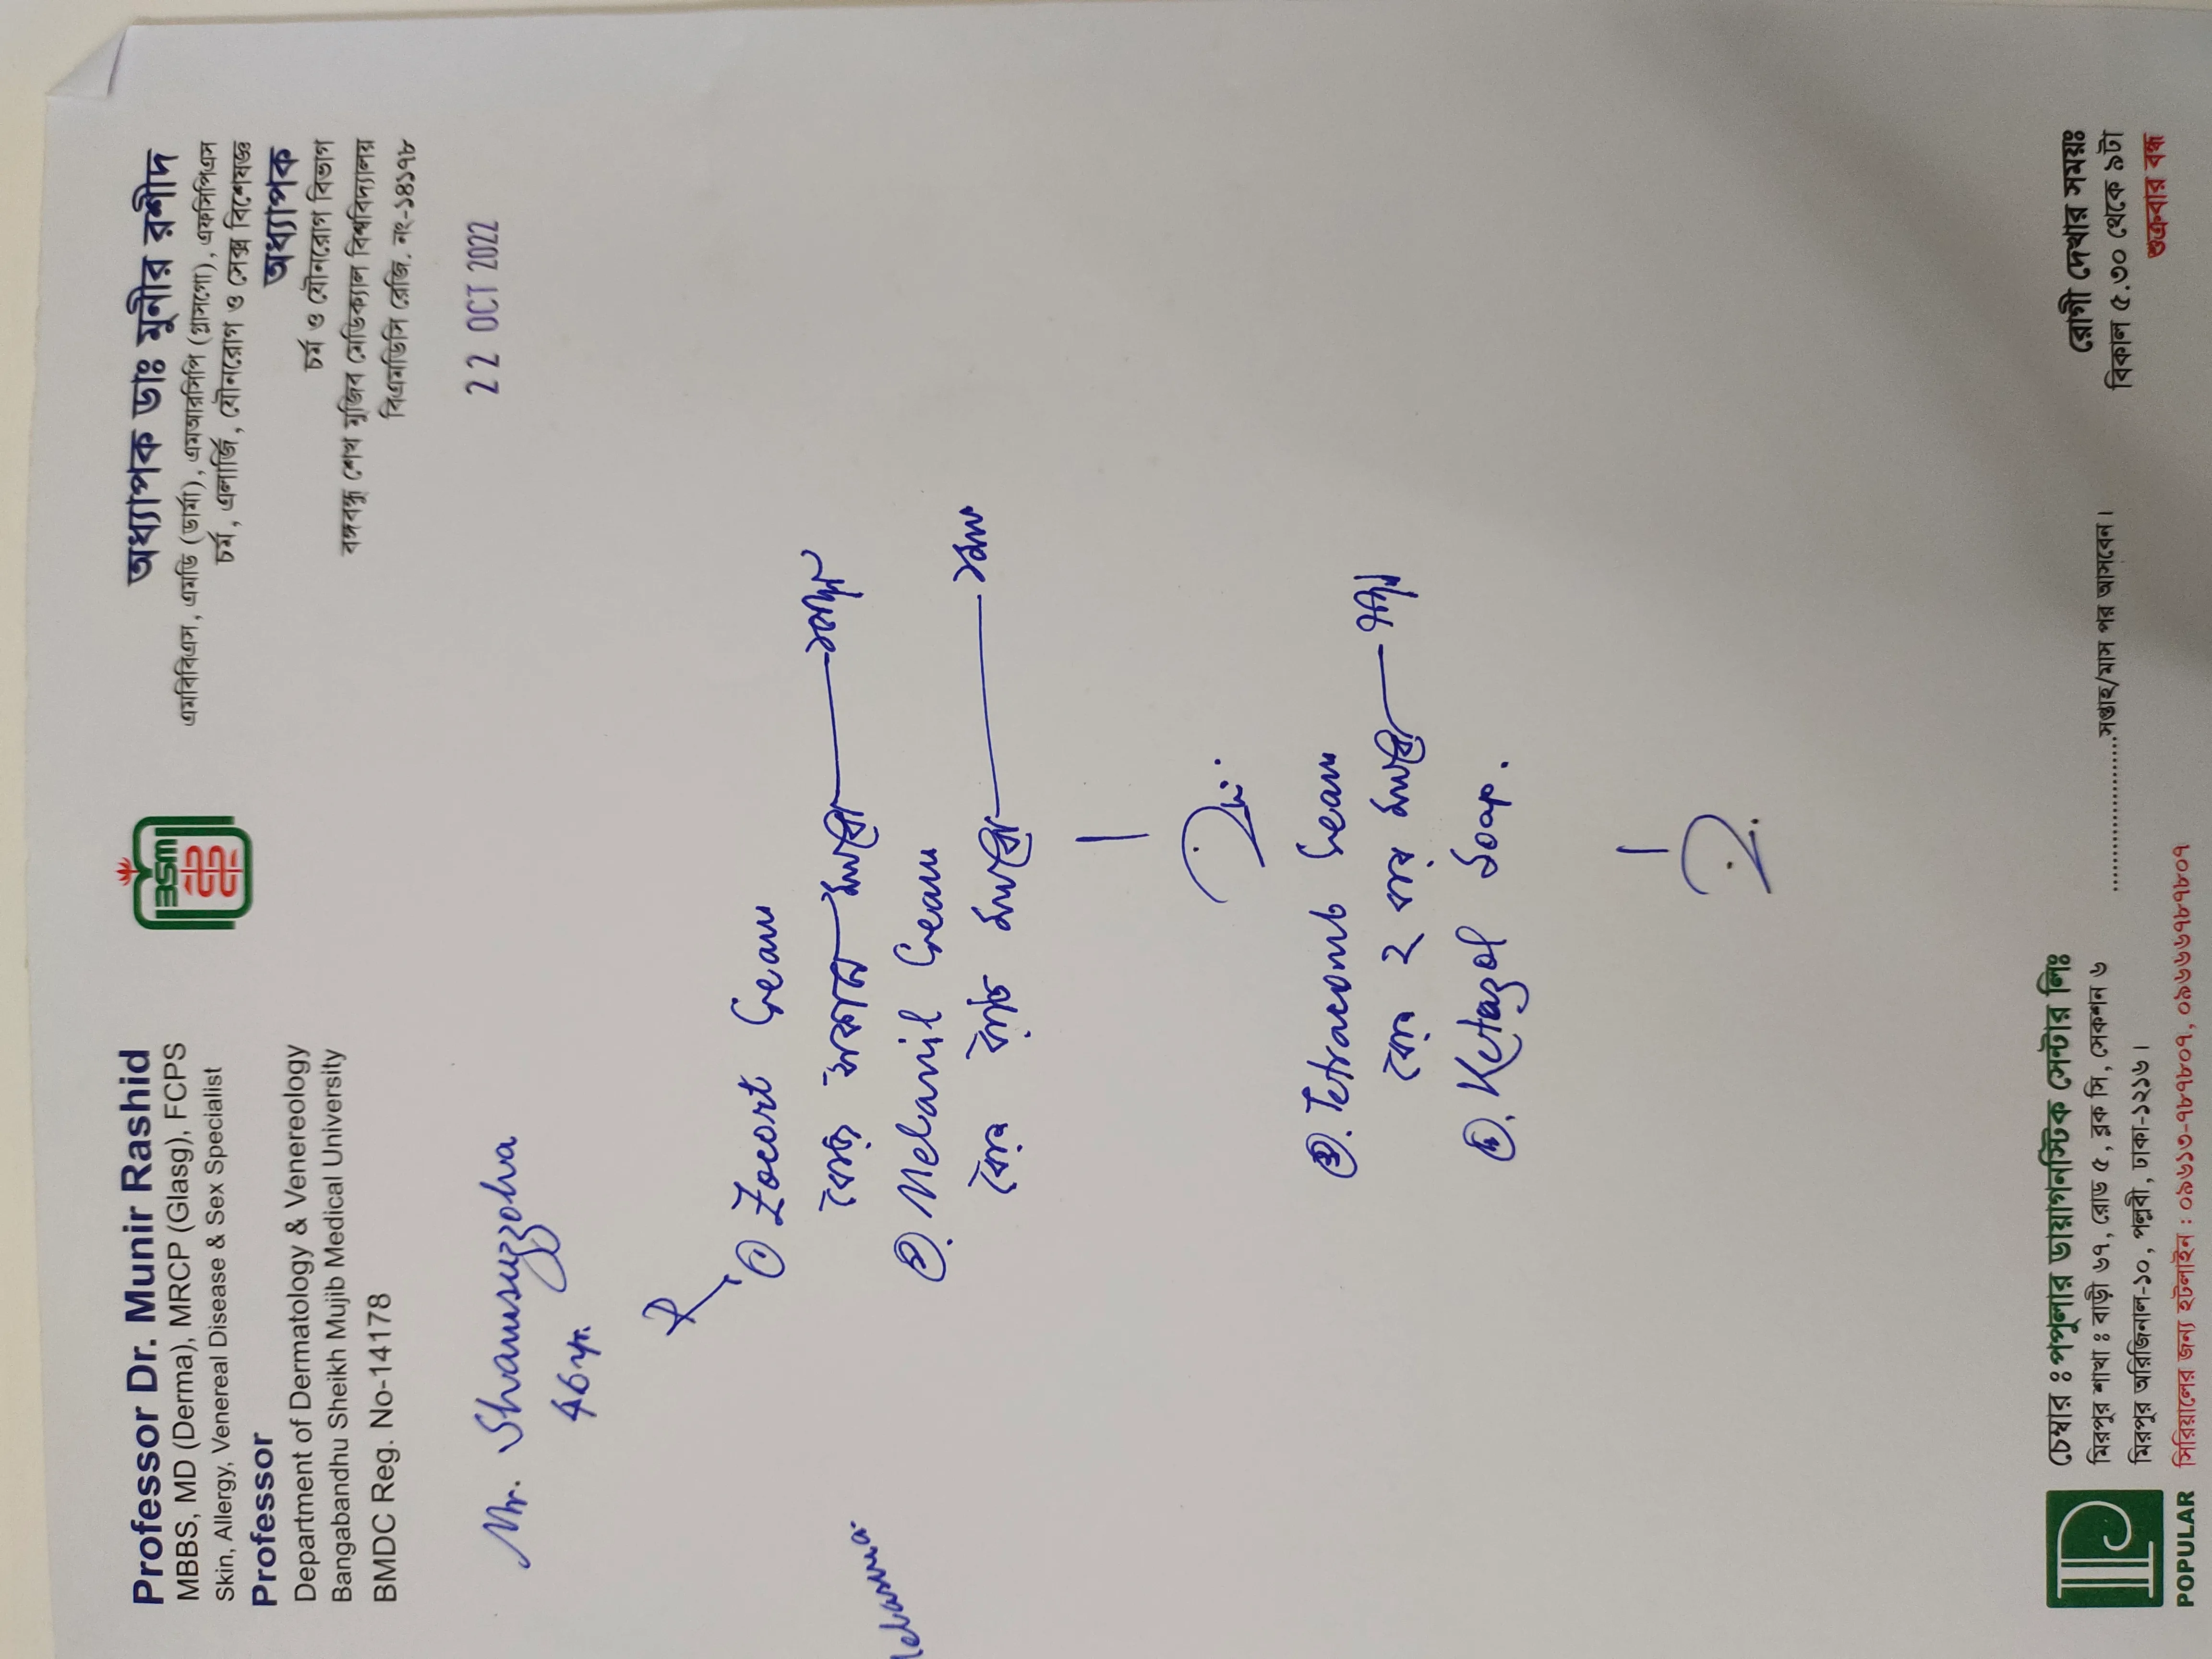 Professor Dr. Munir Rashid
MBBS, MD (Derma), MRCP (Glasg), FCPS
Skin, Allergy, Venereal Disease & Sex Specialist
Professor
Department of Dermatology & Venereology
Bangabandhu Sheikh Mujib Medical University
BMDC Reg. No-14178
BSM
অধ্যাপক ডাঃ মুনীর রশীদ
এমবিবিএস, এমডি (ডার্মা), এমআরসিপি (গ্লাসগো), এফসিপিএস
চর্ম, এলার্জি, যৌনরোগ ও সেক্স বিশেষজ্ঞ
অধ্যাপক
চর্ম ও যৌনরোগ বিভাগ
বঙ্গবন্ধু শেখ মুজিব মেডিক্যাল বিশ্ববিদ্যালয়
বিএমডিসি রেজি. নং-১৪১৭৮
22 OCT 2022
Mr. Shamsuzzoha
46 yr.
① Zocort Cream
রোজ সকালে
elasma.
②. Melanil Cream
রোজ রাতে
③. Tetracomb Cream
রোজ ২ বার
④. Ketazol soap.
POPULAR
চেম্বার ঃ পপুলার ডায়াগনস্টিক সেন্টার লিঃ
মিরপুর শাখা ঃ বাড়ী ৬৭, রোড ৫, ব্লক সি, সেকশন ৬
মিরপুর অরিজিনাল-১০, পল্লবী, ঢাকা-১২১৬।
সিরিয়ালের জন্য হটলাইন : ০৯৬১৩-৭৮৭৮০৭, ০৯৬৬৬৭৮৭৮০৭
....................সপ্তাহ/মাস পর আসবেন।
রোগী দেখার সময়ঃ
বিকাল ৫.৩০ থেকে ৯টা
শুক্রবার বন্ধ